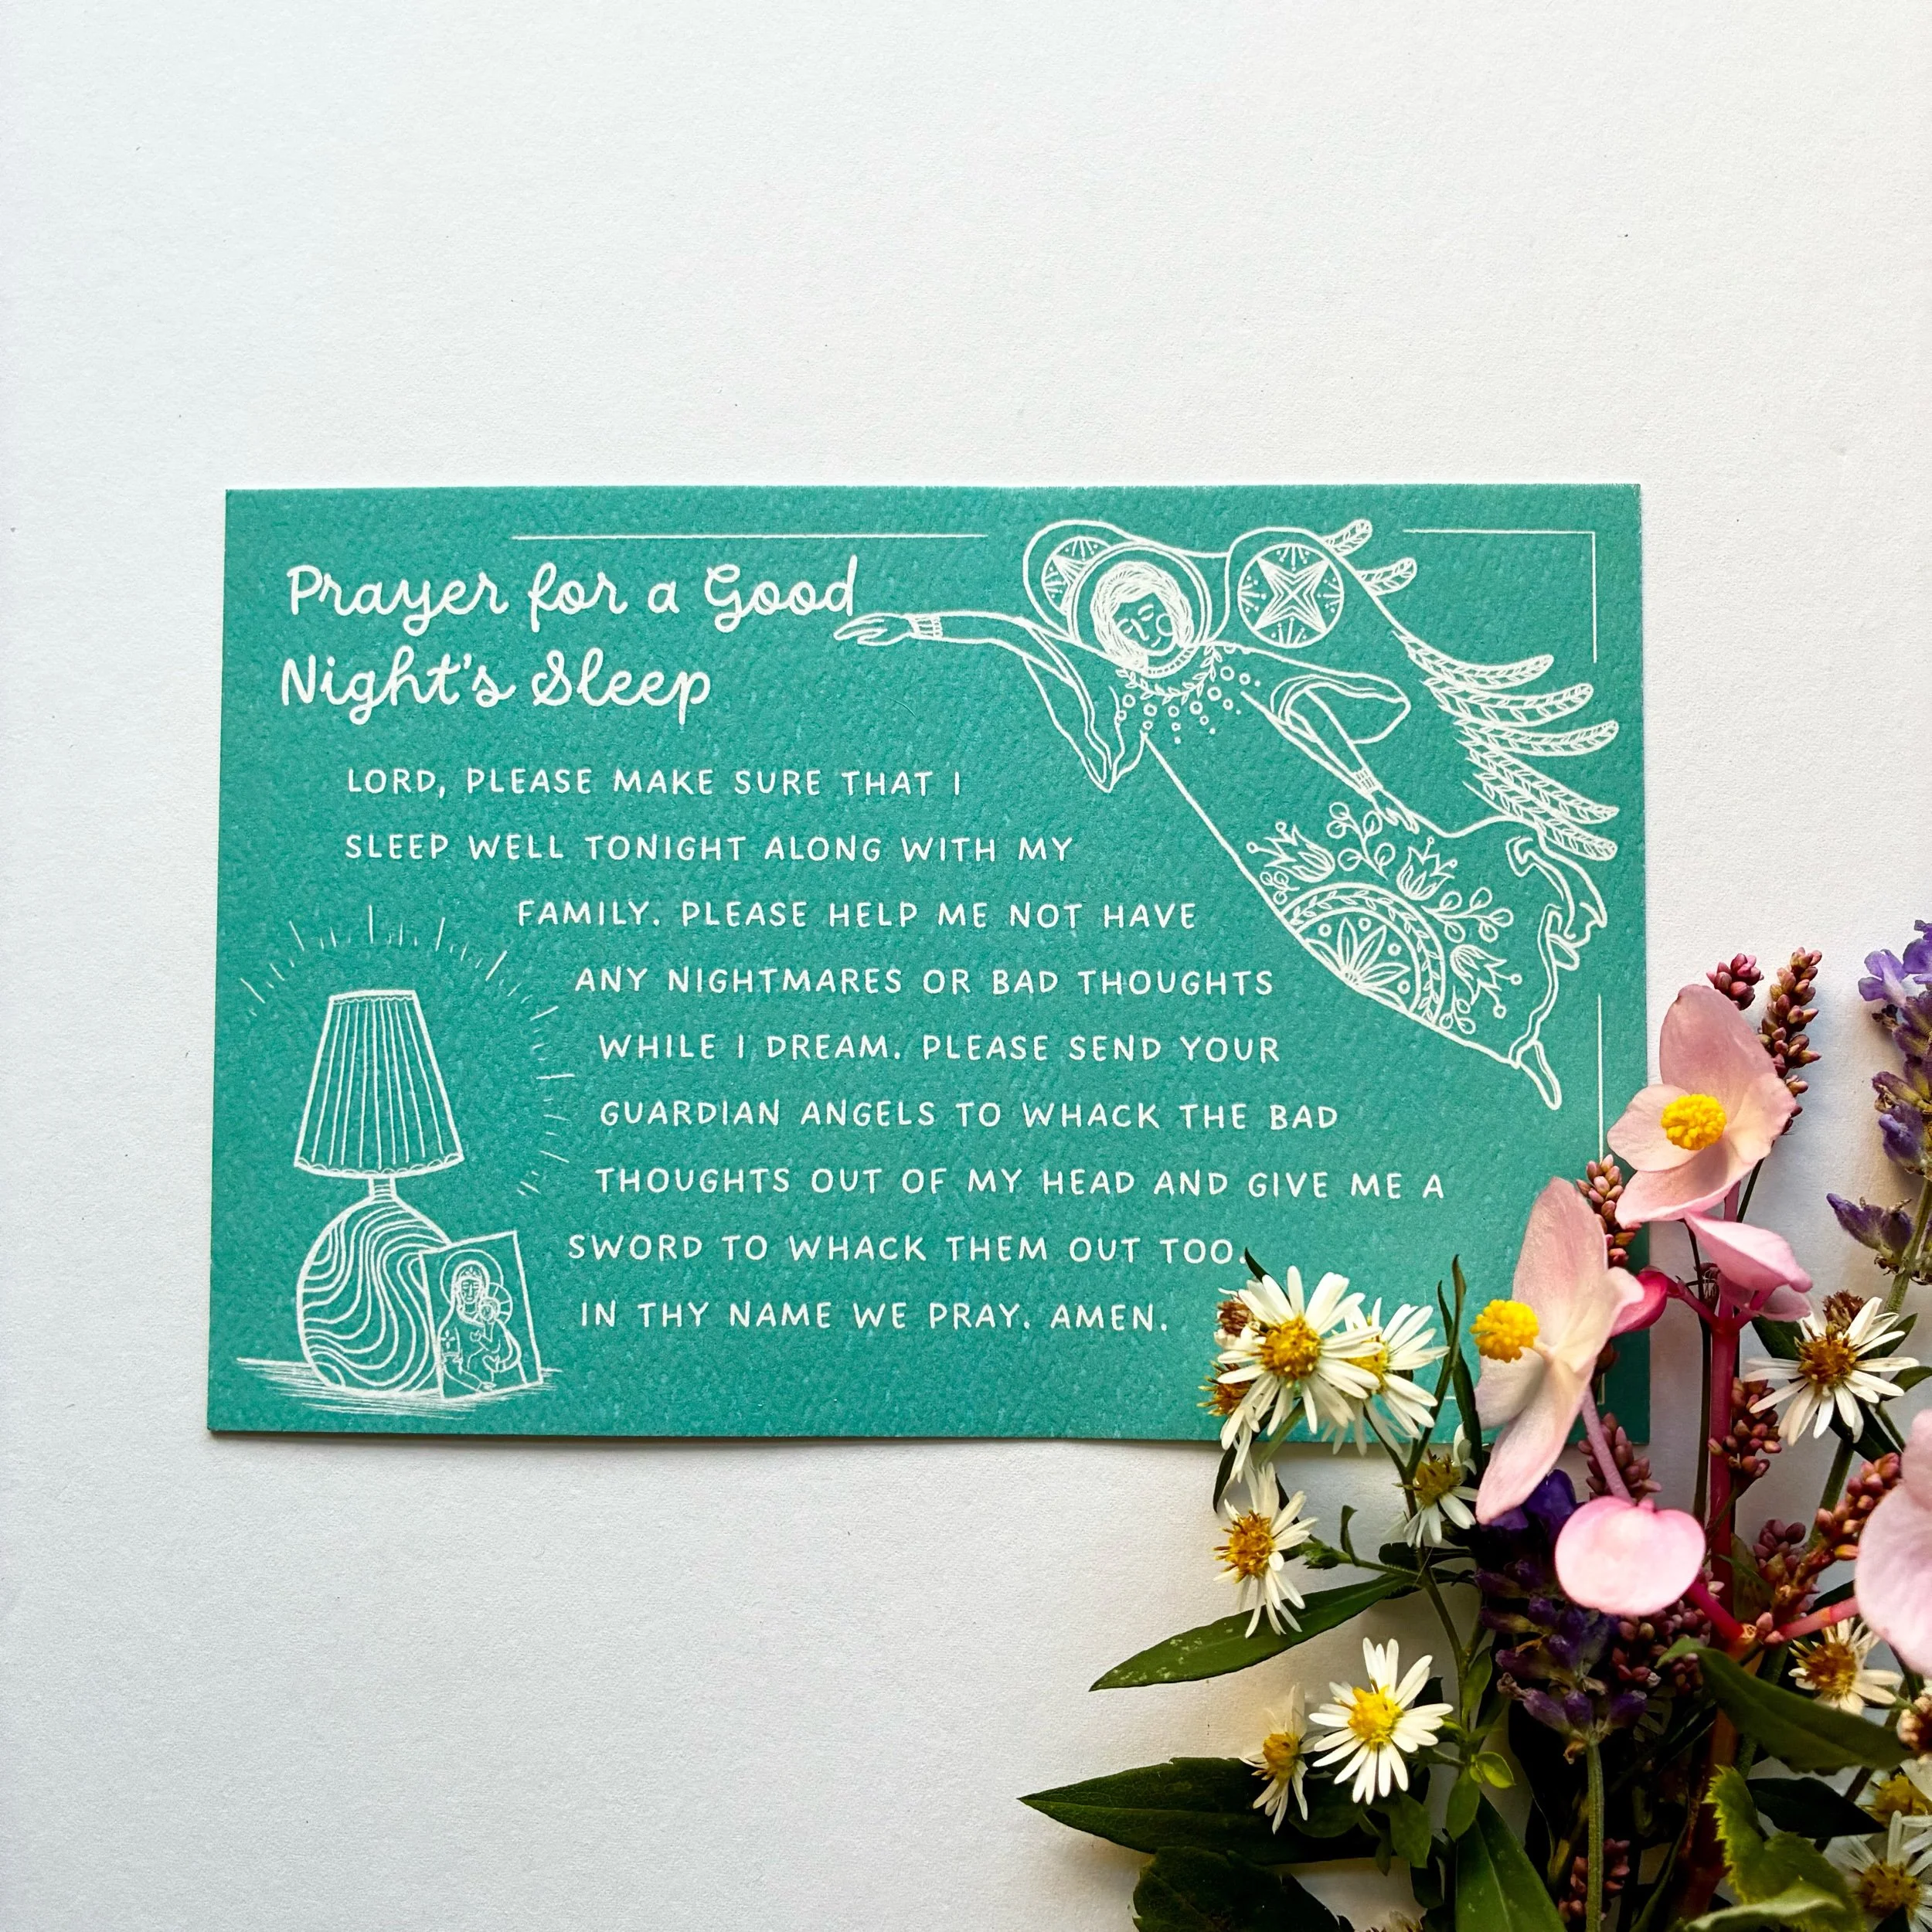 Prayer for a Good
Night's Sleep
LORD, PLEASE MAKE SURE THAT I
SLEEP WELL TONIGHT ALONG WITH MY
FAMILY. PLEASE HELP ME NOT HAVE
ANY NIGHTMARES OR BAD THOUGHTS
WHILE I DREAM. PLEASE SEND YOUR
GUARDIAN ANGELS TO WHACK THE BAD
THOUGHTS OUT OF MY HEAD AND GIVE ME A
SWORD TO WHACK THEM OUT TOO.
IN THY NAME WE PRAY. AMEN.